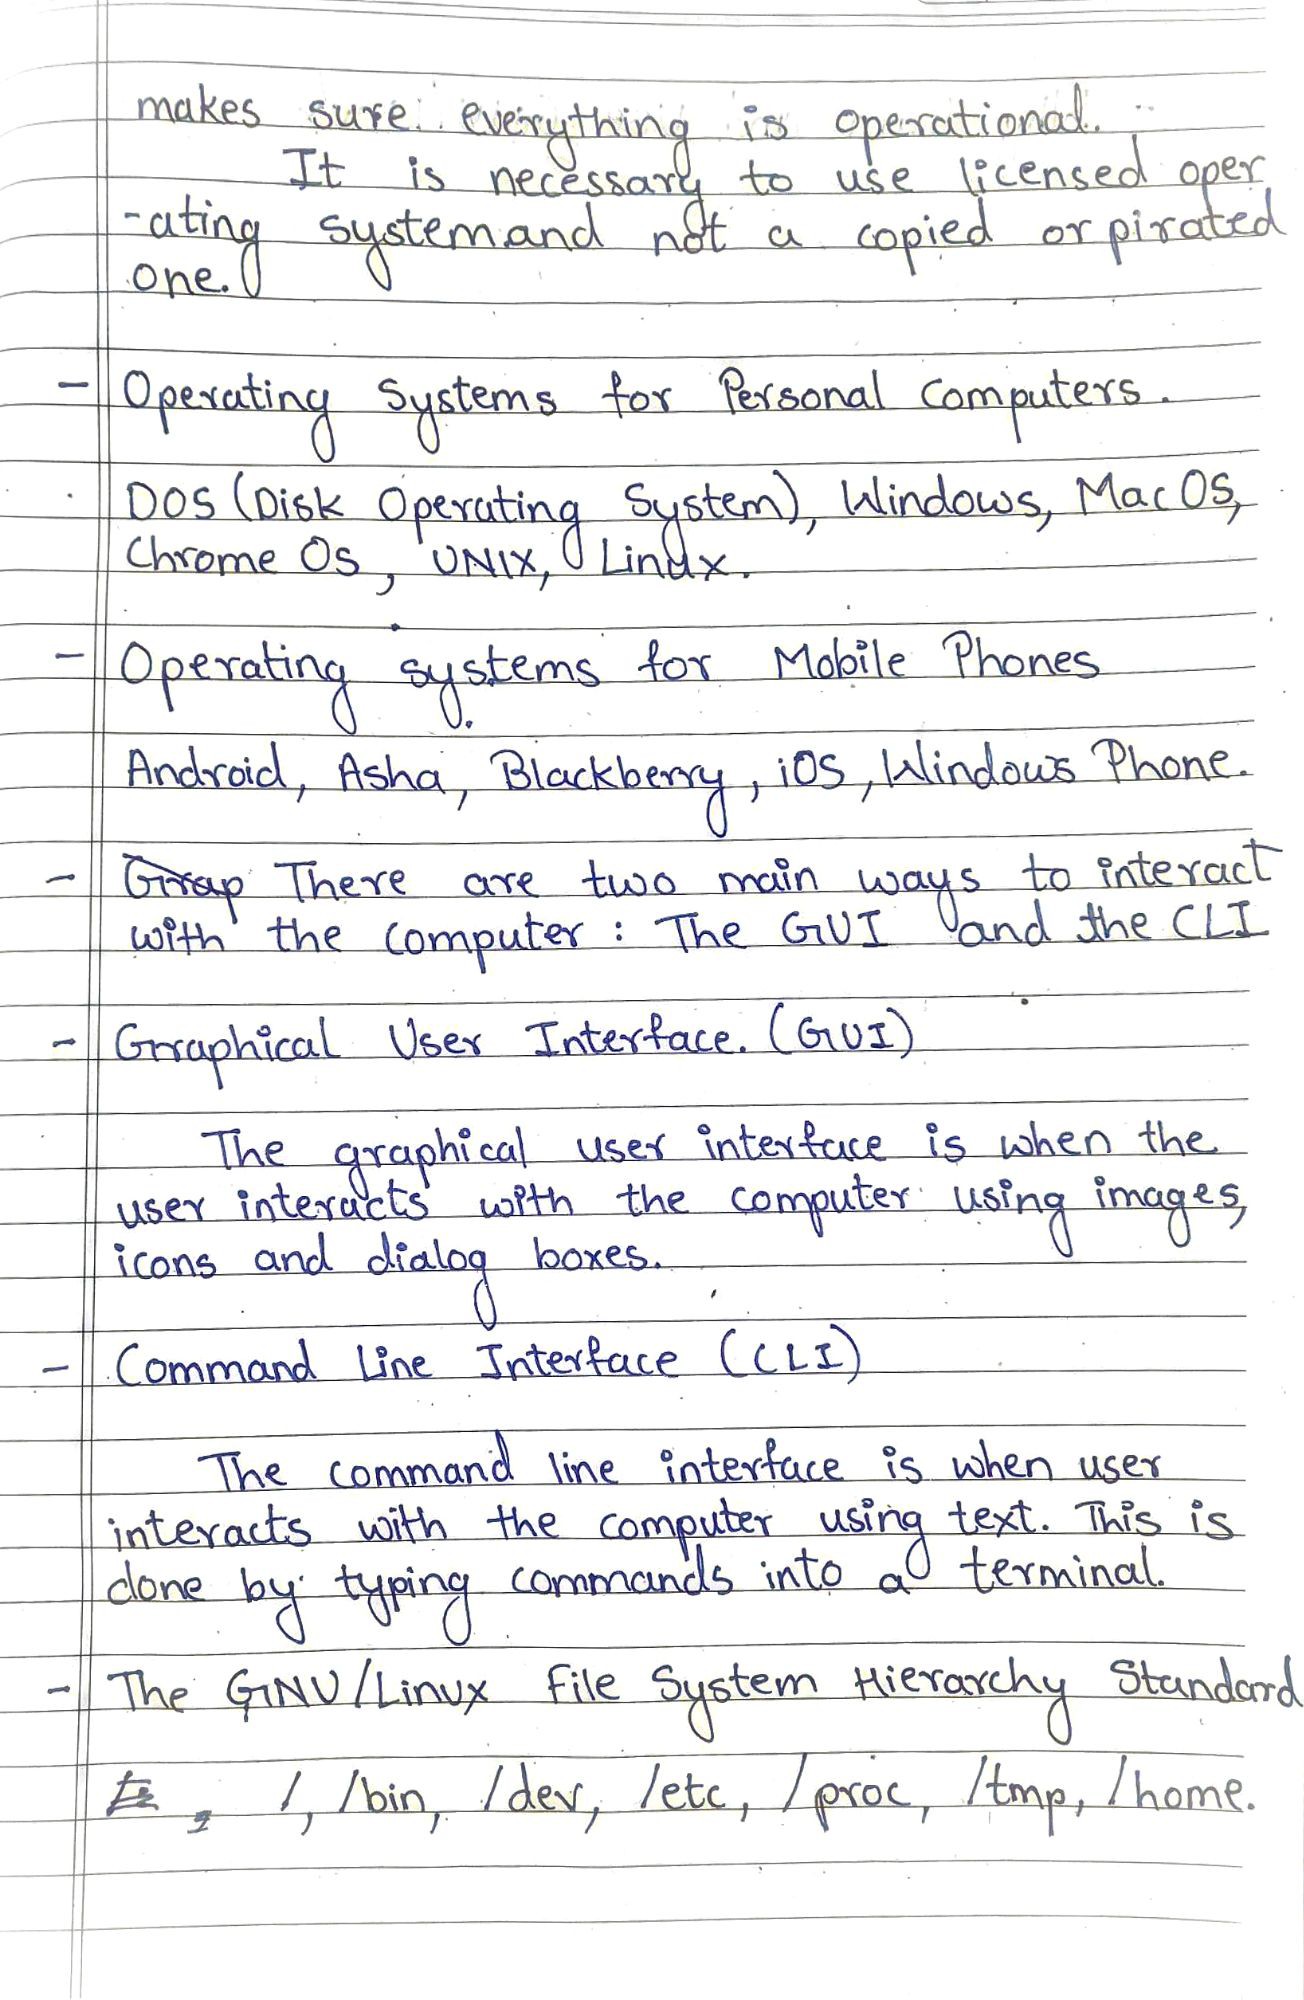 makes sure everything is operational.
It is necessary to use licensed oper
-ating system and not a copied or pirated
one.
- Operating Systems for Personal Computers.
DOS (Disk Operating System), Windows, Mac OS,
Chrome Os, UNIX, Linux.
- Operating systems for Mobile Phones
Android, Asha, Blackberry, iOS, Windows Phone.
- Grap There are two main ways to interact
with the computer : The GUI and the CLI
- Graphical User Interface. (GUI)
The graphical user interface is when the
user interacts with the computer using images,
icons and dialog boxes.
- Command Line Interface (CLI)
The command line interface is when user
interacts with the computer using text. This is
done by typing commands into a terminal.
- The GNU/Linux File System Hierarchy Standard
/, /bin, /dev, /etc, /proc, /tmp, /home.